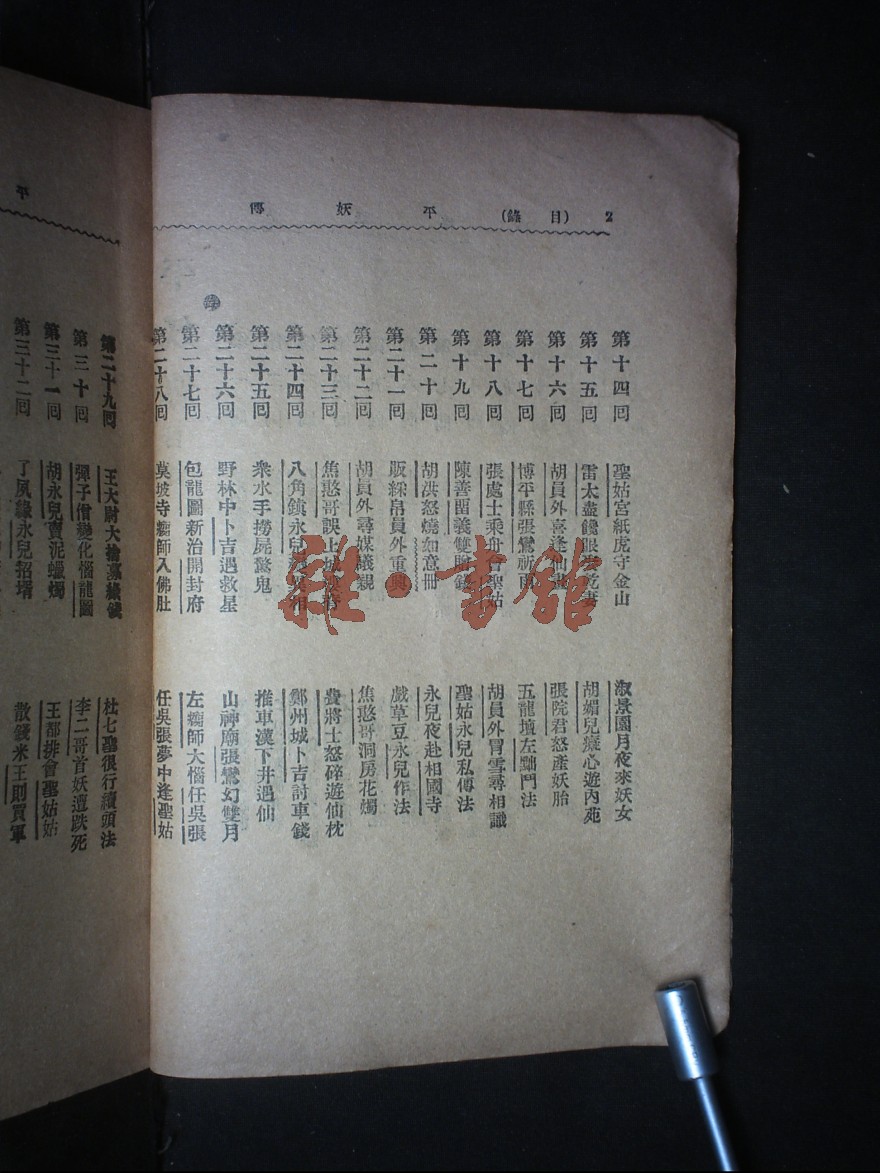 2 (目錄) 平妖傳
第十四回 聖姑宮紙虎守金山 淑景園月夜來妖女
第十五回 雷太監饞眼娶乾妻 胡媚兒癡心遊內苑
第十六回 胡員外喜逢仙畫 張院君怒產妖胎
第十七回 博平縣張鸞祈雨 五龍壇左黜鬥法
第十八回 張處士乘舟會聖姑 胡員外冒雪尋相識
第十九回 陳善留義雙贈錢 聖姑永兒私傳法
第二十回 胡洪怒燒如意冊 永兒夜赴相國寺
第二十一回 販綵帛員外重興 戲草豆永兒作法
第二十二回 胡員外尋媒議親 焦憨哥洞房花燭
第二十三回 焦憨哥誤上城樓脊 費將士怒碎遊仙枕
第二十四回 八角鎮永兒變異相 鄭州城卜吉討車錢
第二十五回 衆水手撈屍驚鬼 推車漢下井遇仙
第二十六回 野林中卜吉遇救星 山神廟張鸞幻雙月
第二十七回 包龍圖新治開封府 左瘸師大惱任吳張
第二十八回 莫坡寺瘸師入佛肚 任吳張夢中逢聖姑
平
第二十九回 王太尉大捨募緣錢 杜七聖狠行續頭法
第三十回 彈子僧變化惱龍圖 李二哥首妖遭跌死
第三十一回 胡永兒賣泥蠟燭 王都排會聖姑姑
第三十二回 了夙緣永兒招壻 散錢米王則買軍
雜·書館